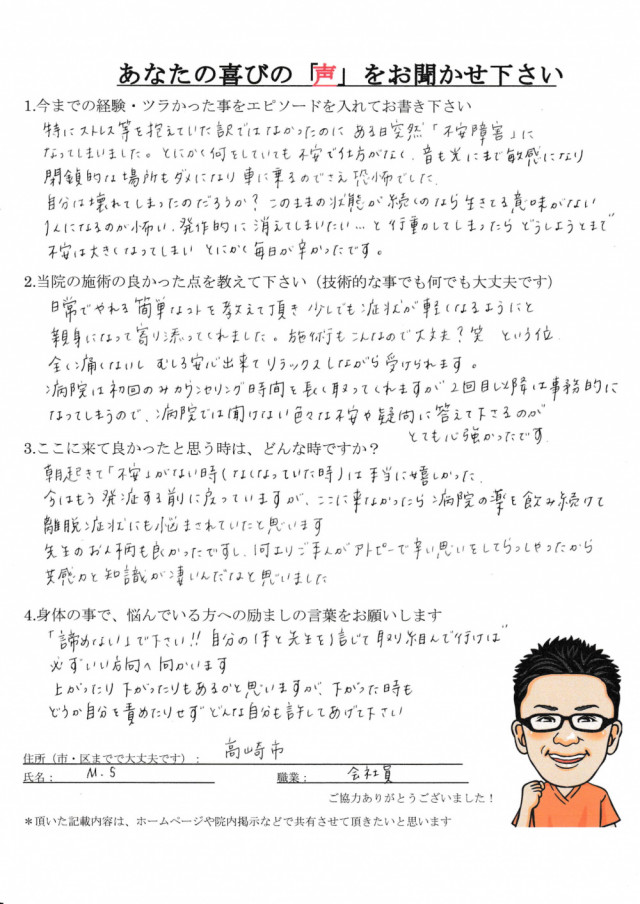 あなたの喜びの「声」をお聞かせ下さい
1.今までの経験・ツラかった事をエピソードを入れてお書き下さい
特にストレス等を抱えていた訳ではなかったのに ある日突然「不安障害」に
なってしまいました。とにかく何をしていても不安で仕方がなく、音も光にまで敏感になり
閉鎖的な場所もダメになり車に乗るのでさえ恐怖でした。
自分は壊れてしまったのだろうか？このままの状態が続くのなら生きてる意味がない
1人になるのが怖い、発作的に消えてしまいたい…と行動してしまったらどうしようとまで
不安は大きくなってしまい とにかく毎日が辛かったです。
2.当院の施術の良かった点を教えて下さい（技術的な事でも何でも大丈夫です）
日常でやれる簡単なコトを教えて頂き 少しでも症状が軽くなるようにと
親身になって寄り添ってくれました。施術もこんなので大丈夫？笑 という位
全く痛くないし むしろ安心出来てリラックスしながら受けられます。
病院は初回のみカウンセリング時間を長く取ってくれますが2回目以降は事務的に
なってしまうので、病院では聞けない色々な不安や疑問に答えて下さるのが
とても心強かったです
3.ここに来て良かったと思う時は、どんな時ですか？
朝起きて「不安」がない時(なくなっていた時)は本当に嬉しかった
今はもう発症する前に戻っていますが、ここに来なかったら病院の薬を飲み続けて
離脱症状にも悩まされていたと思います
先生のお人柄も良かったですし、何よりご本人がアトピーで辛い思いをしてらっしゃったから
共感力と知識が凄いんだなと思いました
4.身体の事で、悩んでいる方への励ましの言葉をお願いします
「諦めない」で下さい!! 自分の体と先生を信じて取り組んで行けば
必ずいい方向へ向かいます
上がったり下がったりもあるかと思いますが、下がった時も
どうか自分を責めたりせず どんな自分も許してあげて下さい
住所（市・区までで大丈夫です）： 高崎市
氏名： M.S 職業： 会社員
ご協力ありがとうございました！
＊頂いた記載内容は、ホームページや院内掲示などで共有させて頂きたいと思います